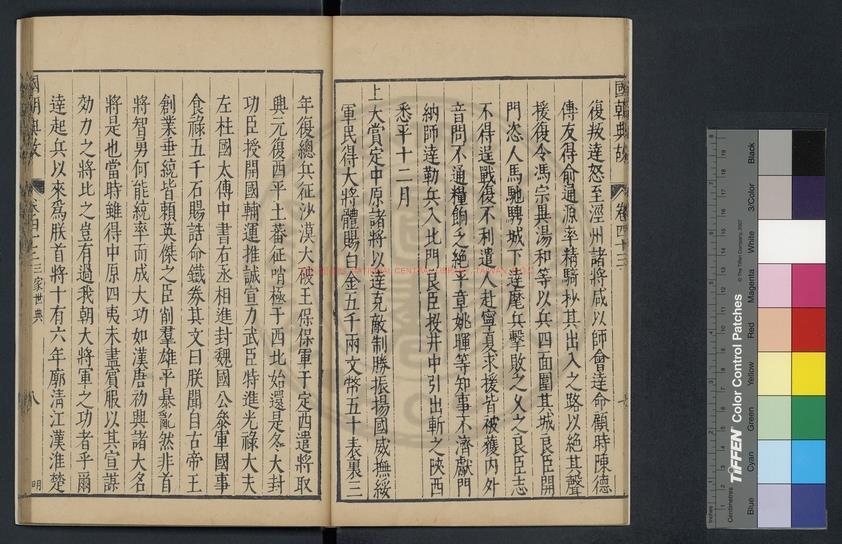 國朝典故 卷四十三
復叛達怒至涇州諸將咸以師會達命顧時陳德
傅友得俞通源率精騎抄其出入之路以絕其聲
援復令馮宗異湯和等以兵四面圍其城良臣開
門恣人馬馳騁城下達麾兵擊敗之久之良臣志
不得逞戰復不利遣人赴寧夏求援皆被獲內外
音問不通糧餉乏絕平章姚暉等知事不濟獻門
納師達勒兵入北門良臣投井中引出斬之陜西
悉平十二月
上大賞定中原諸將以達克敵制勝振揚國威撫綏
軍民得大將體賜白金五千兩文幣五十表裏三
年復總兵征沙漠大破王保保軍于定西遣將取
興元復西平土蕃征哨極于西北始還是冬大封
功臣授開國輔運推誠宣力武臣特進光祿大夫
左柱國太傅中書右丞相進封魏國公叅軍國事
食祿五千石賜誥命鐵券其文曰朕聞自古帝王
創業垂統皆賴英傑之臣削羣雄平暴亂然非首
將智勇何能統率而成大功如漢唐初興諸大名
將是也當時雖得中原四夷未盡賓服以其宣謀
効力之將比之豈有過我朝大將軍之功者乎爾
達起兵以來爲朕首將十有六年廓清江漢淮楚
國朝典故
三家世典
八
明
TIFFEN Color Control Patches
© The Tiffen Company, 2007
Centimetres
Inches
Blue
Cyan
Green
Yellow
Red
Magenta
White
3/Color
Black